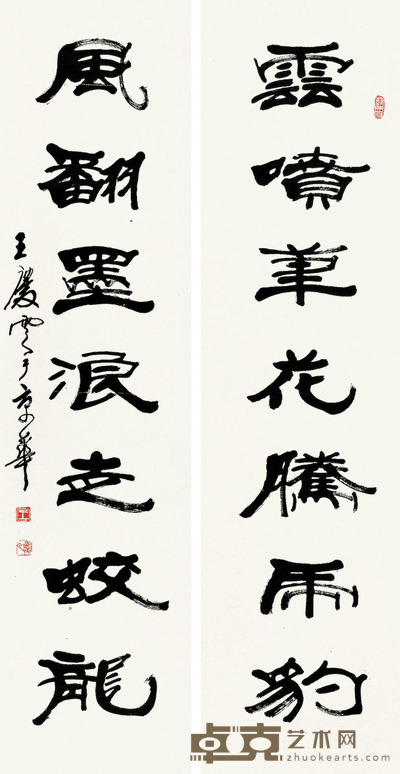 雲噴筆花騰虎豹
風翻墨浪走蛟龍
王慶雲于京華
卓克艺术网
zhuokearts.com